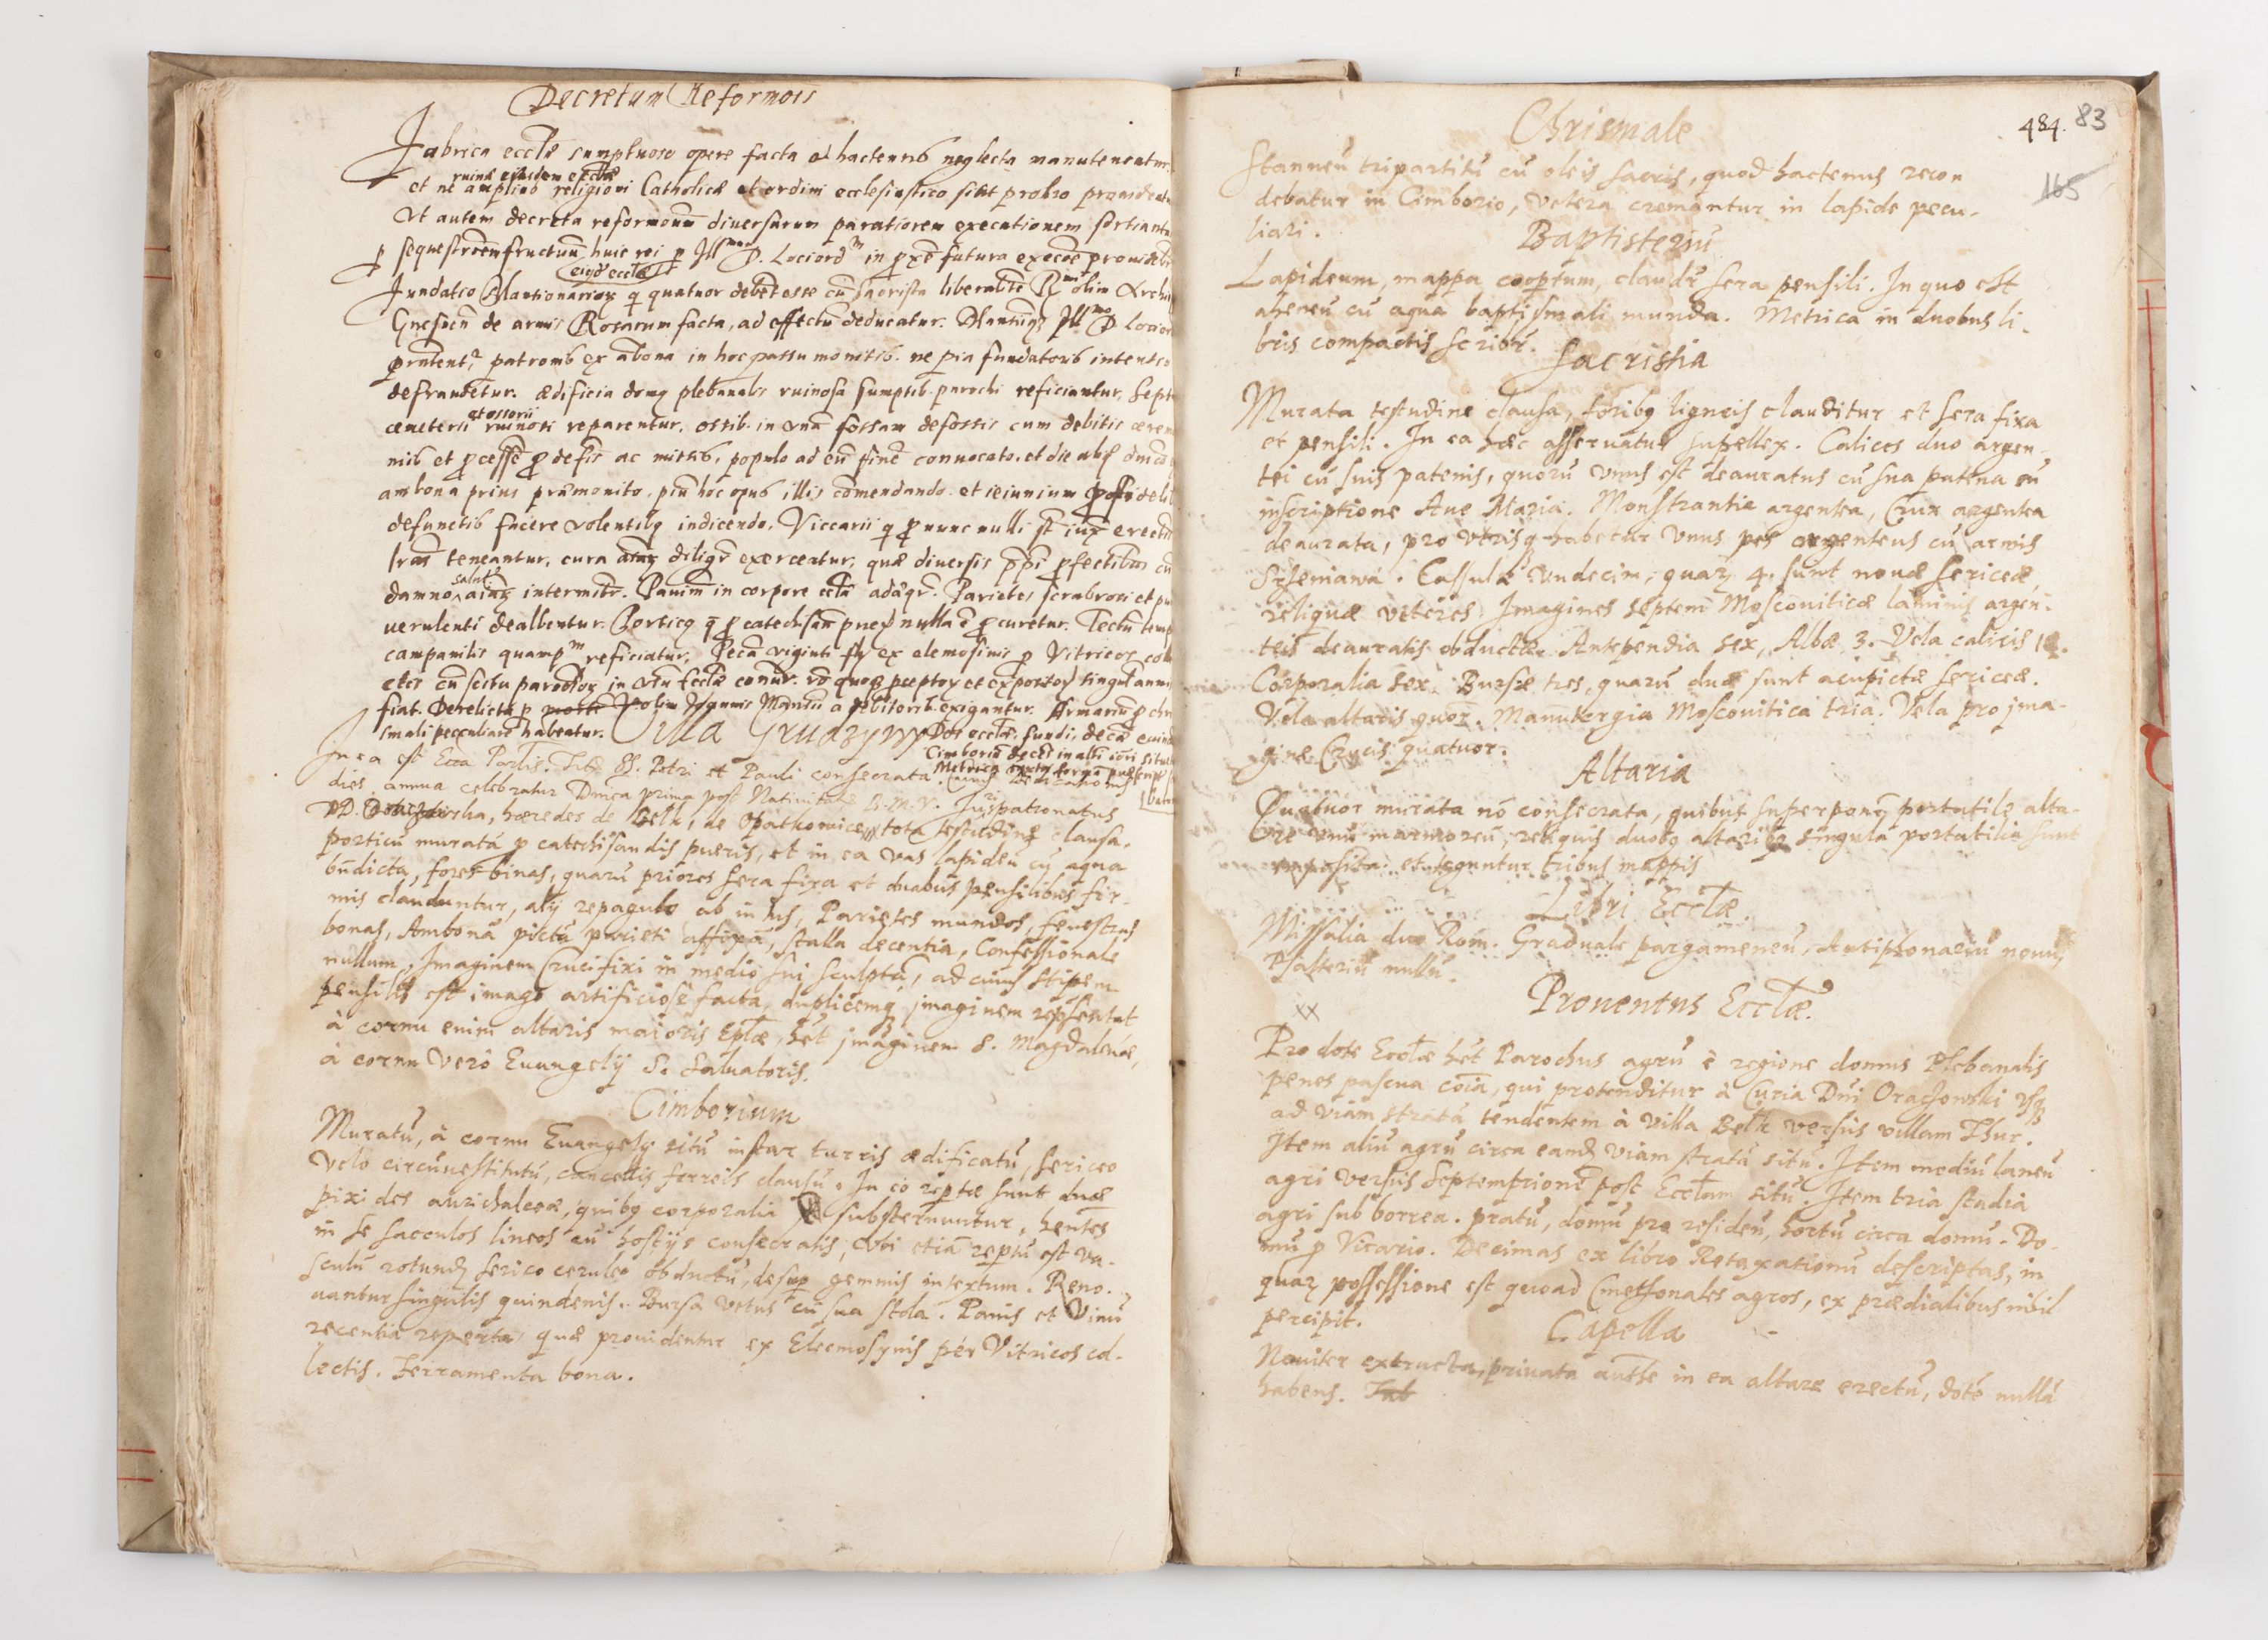 Decretum Reformois
Fabrica eccłæ sumptuoso opere facta ac hactenus neglecta manuteneatur
ruinæ eiusdem eccłæ
et ne amplius religioni Catholicæ et ordini ecclesiastico sint probro prouideat
Vt autem decreta reformonum diuersarum paratiorem executionem sortiantu
p sequestroem fructuum huic rei p Illmum D. Lociordm in pxe futura execoe prouidebi
eiusd eccłæ
Fundatio Mantionarior q quatuor debent esse cu sacrista liberalite Rmi olim Archi
Gnesnen de armis Rosarum facta, ad effectu deducatur. Illmo D Locior
pntent, patronis ex abona in hoc passu monitis. ne pia fundatoris intentio
defraudetur. ædificia domq plebanalis ruinosa sumptib. parochi reficiantur. Sept
et ossorii
cæmeterii ruinosi reparentur. ossib. in vna fossam defossis cum debitis cerem
niis et pcesse p defis ac missis, populo ad eu fine conuocato. et die abq
ambona prius præmonito. piu hoc opus illis comendando. et ieiunium p fideli
defunctis facere volentibq indicendo. Viccarii q p nunc nulli st iux erectio
lras teneantur. cura aiaq diligr exerceatur. quæ diuersis pfectibus cu
salut
damno aiaq intermitr. Pauim in corpore eccłæ adæqr. Parietes scrabrosi et pu
uerulenti dealbentur. Porticq q p catechisan puer nulla e pcuretur. Tectu temp
campanilis quampm reficiatur. Peca viginti fl ex elemosinis p Vitricos col
etis cu scitu parochor in vsu Eccłæ conur. vo quoq pceptor et expositor singul annis
fiat. Derelicta p morte olim Joannis Mansiu a debitorib. exigantur. Armariu p chri
smali peculiare habeatur.
Villa Grudzyny
Dos eccłæ. fundi, decæ
Cimboriu decet in alti situ
In ea est Ecca Parlis. Titlo SS. Petri et Pauli consecrata
dies annua celebratur Dnica prima post Natiuitate B.M.V. Jurispatronatus
DD. hæredes de Belk, de Opatkowice tota testudine clausa.
porticu murata p catechisandis pueris, et in ea vas lapideu cu aqua
bndicta, fores binas, quaru priores sera fixa et duabus pensilibus fir-
mis clauduntur, aliæ repagulo ab intus, Parietes mundos, fenestras
bonas, Ambona picta parieti affixa, stalla decentia, Confessionale
nullum. Imaginem Crucifixi in medio sui sculpta, ad cuius stipem
pensilis est imago artificiose facta, duplicemq imaginem repsentat
à cornu enim altaris maioris Eplæ, het imaginem S. Magdalenæ,
à cornu verò Euangelij S. Saluatoris.
Cimborium
Muratu, à cornu Euangelij situ instar turris ædificatu, sericeo
velo circuuestitutu, cancellis ferreis clausu. In eo reptæ sunt duæ
pixides aurichalceæ, quibq corporalia substernuntur, hentes
in se sacculos lineos cu hostijs consecratis, vbi etia reptu est va-
sculu rotund serico ceruleo obductu, desup gemmis intextum. Reno-
uantur singulis quindenis. Bursa vetus cu sua stola. Panis et Vinu
recentia reperta, quæ prouidentur ex Eleemosynis per Vitricos col-
lectis. Ferramenta bona.
484. 83
165
Chrismale
Stanneu tripartitu cu oleis sacris, quod hactenus recon
debatur in Cimborio, vetera cremantur in lapide pecu-
liari.
Baptisteriu
Lapideum, mappa coopertum, claudr sera pensili. In quo est
aheneu cu aqua baptismali munda. Metrica in duobus li-
bris compactis scribr.
Sacristia
Murata testudine clausa, foribq ligneis clauditur et sera fixa
et pensili. In ea hæc asseruatur supellex. Calices duo argen-
tei cu suis patenis, quoru vnus est deauratus cu sua patena cu
inscriptione Aue Maria. Monstrantia argentea, Crux argentea
deaurata, pro vtrisq habetur vnus pes argenteus cu armis
Srzeniawa. Cassulæ vndecim, quar 4. sunt nouæ sericeæ,
reliquæ veteres. Imagines septem Mosconiticæ laminis argen-
teis deauratis obductæ. Antependia sex, Albæ 3. Vela calicis 12.
Corporalia sex. Bursæ tres, quaru duæ sunt acupictæ sericeæ.
Vela altaris quor. Manutergia Mosconitica tria. Vela pro jma-
gine Crucis quatuor.
Altaria
Quatuor murata no consecrata, quibus superponr portatile alta-
re vnu marmoreu, reliquis duobq altaribq singula portatilia sunt
imposita et teguntur tribus mappis
Libri Eccłæ.
Missalia duo Rom. Graduale pargameneu, Antiphonariu nouu,
Psalteriu nullu.
xx
Prouentus Eccłæ.
Pro dote Eccłæ het Parochus agru è regione domus Plebanalis
penes pascua coia, qui protenditur à Curia Dni Oraczowski vsq
ad viam strata tendentem à villa Belk versus villam Thur.
Item aliu agru circa eand viam strata situ. Item mediu laneu
agri versus Septemtrione post Eccłam situ. Item tria stadia
agri sub horrea. pratu, domu pro residen, hortu circa domu. Do-
mu p Vicario. Decimas ex libro Retaxationu descriptas, in
quar possessione est quoad Cmethonales agros, ex prædialibus nihil
percipit.
Capella
Nouiter extructa, priuata authe in ea altare erectu, dote nulla
habens.